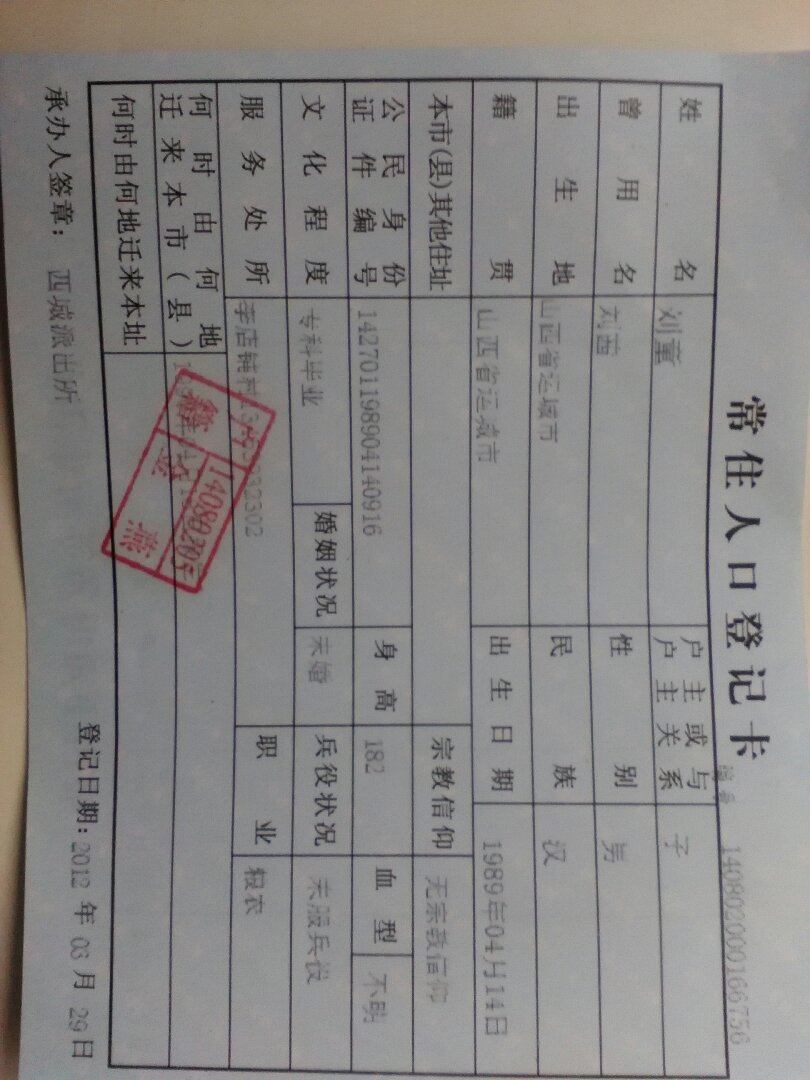 常住人口登记卡
编号 140802000166756
姓名 刘童 户主或与户主关系 子
曾用名 刘茜 性别 男
出生地 山西省运城市 民族 汉
籍贯 山西省运城市 出生日期 1989年04月14日
本市(县)其他住址 宗教信仰 无宗教信仰
公民身份证件编号 142701198904140916 身高 182 血型 不明
文化程度 专科毕业 婚姻状况 未婚 兵役状况 未服兵役
服务处所 李店铺村 职业 粮农
何时由何地迁来本市(县)
何时由何地迁来本址
承办人签章: 西城派出所 登记日期: 2012 年 03 月 29 日